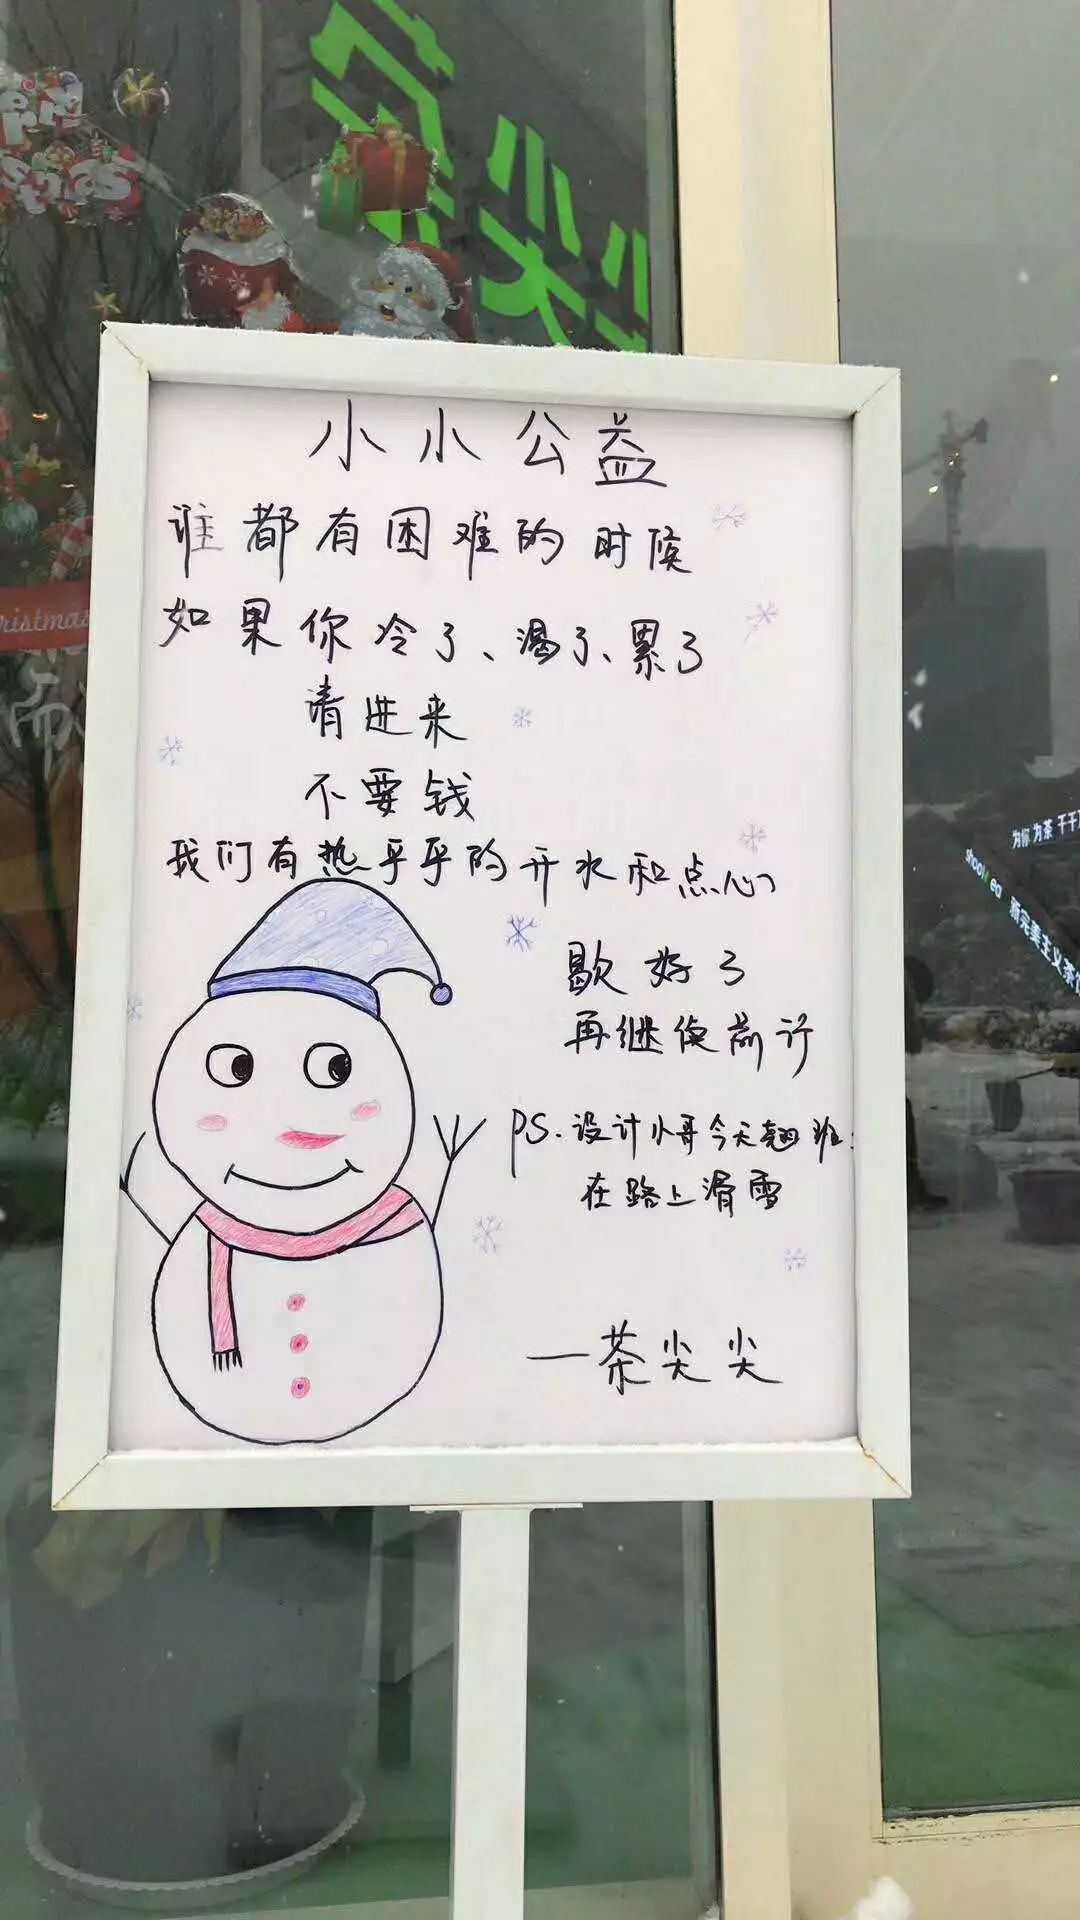 尖
小小公益
谁都有困难的时候
如果你冷了、渴了、累了
请进来
不要钱
我们有热乎乎的开水和点心
歇好了
再继续前行
PS.设计小哥今天翘班:
在路上滑雪
—茶尖尖
ristmas
为你为茶 千千
新完美主义茶